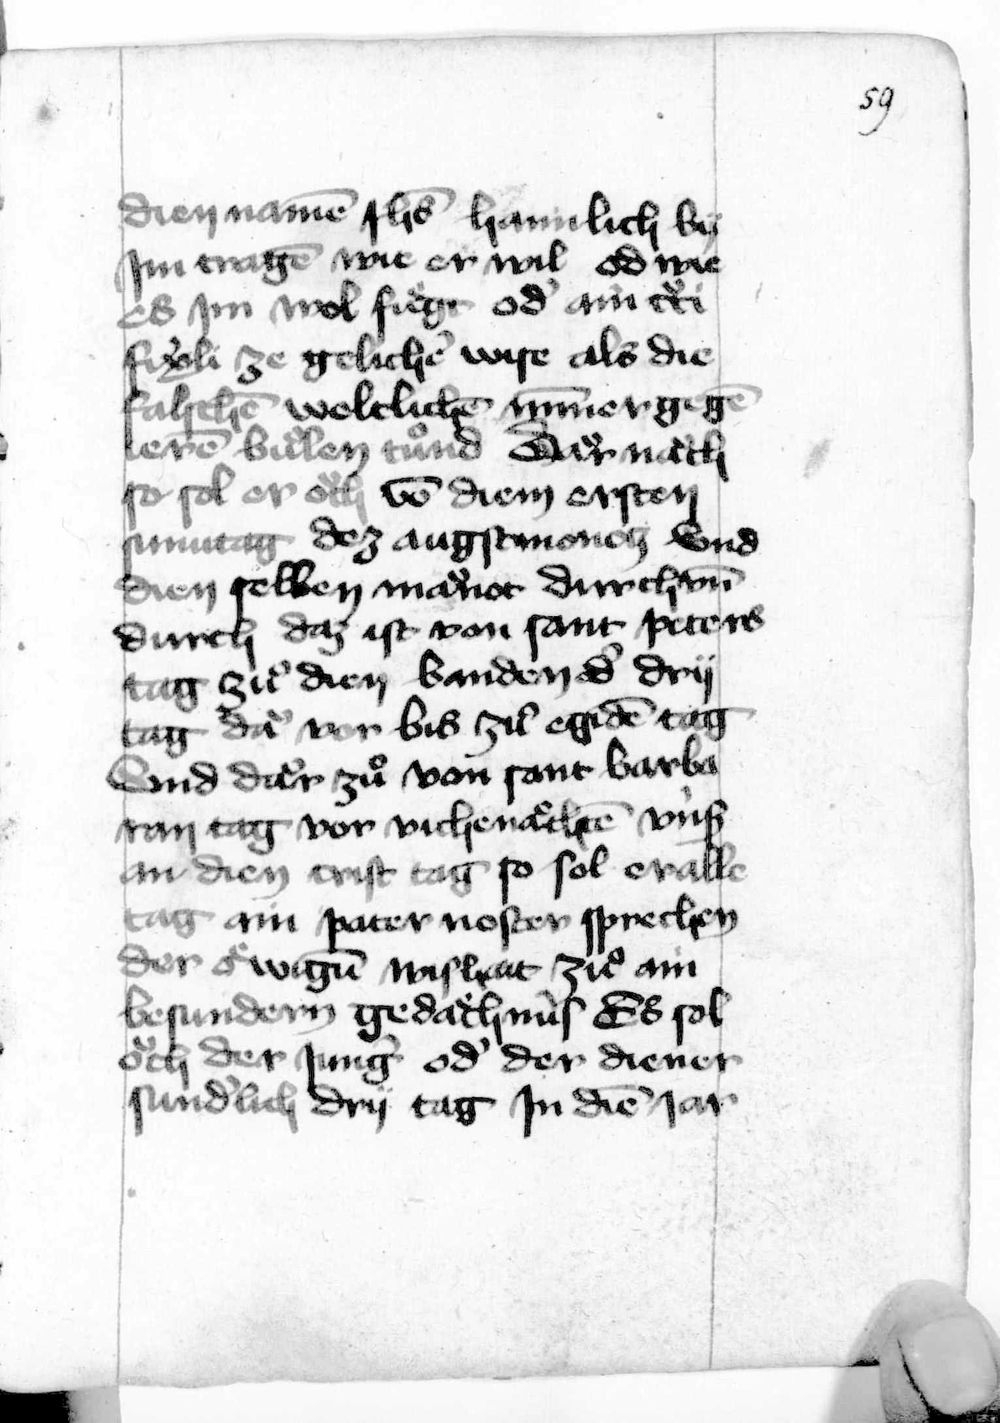 59
dien namē Jhs̄ haimlich bÿ
Jm tragē wie er wil od wie
es Jm wol fuͤgt od' ain
ze gelicher wise als die
falschē weltlichē gegē
ierē buͦlen tuͦnd Dar nach
so sol er oͮch vō diem ersten
sunntag dez augstmonotz Vnd
dien selben manot durch vn̄
durch daz ist von sant peters
tag zuͦ dien banden od' drij
tag da vor bis zuͦ egidē tag
Vnd dar zuͦ von sant barba
ran tag vor vichenachtē
an dien crist tag so sol er alle
tag ain pater noster sprechen
der eͤwigun̄ wishait zuͦ ain
besundern gedachnuͥs Es sol
oͮch der Jung' od' der diener
sund'lich drij tag Jn diē iar